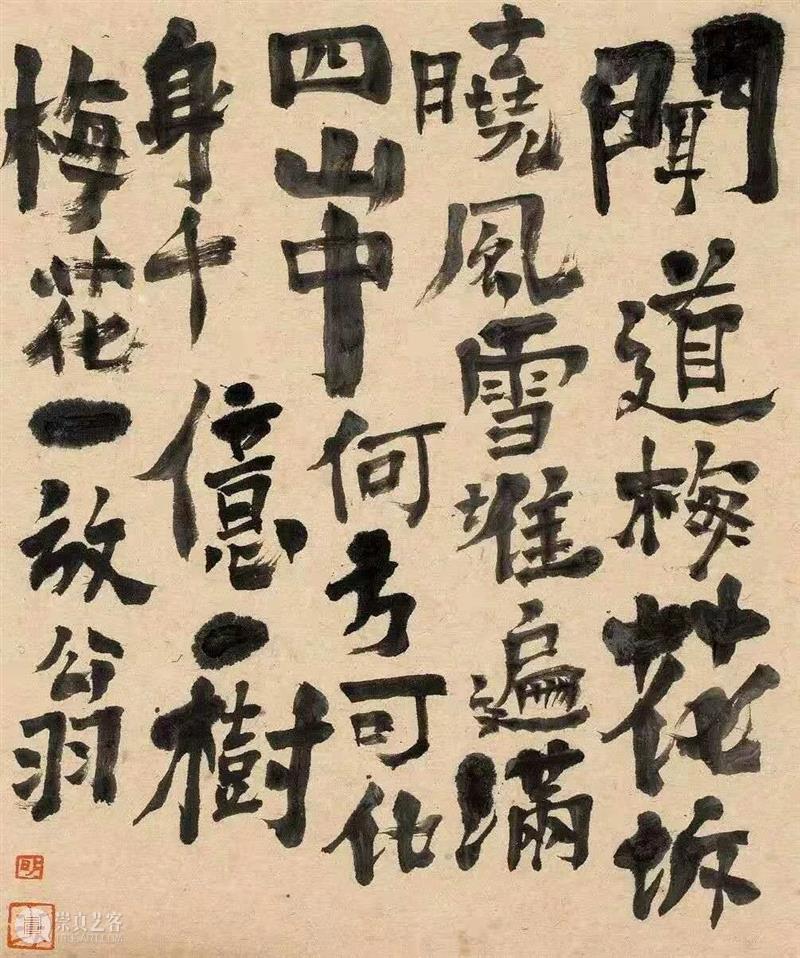 聞道梅花坼
曉風雪堆遍滿
四山中何方可化
身千億一樹
梅花一放翁
崇真艺客